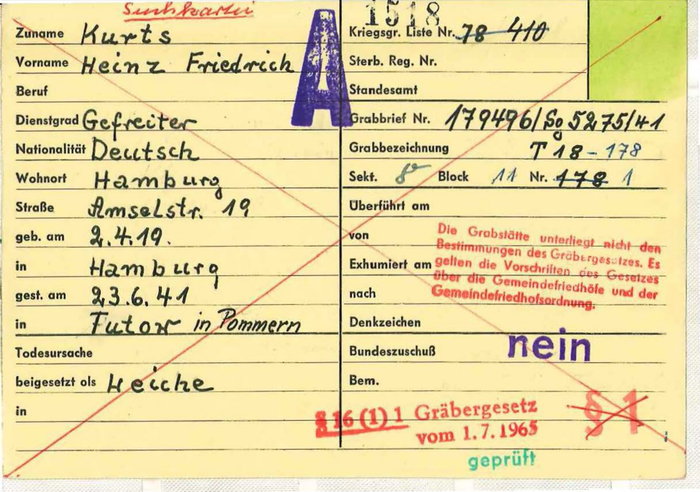 Suchkartei
A
1518
Zuname Kurts
Vorname Heinz Friedrich
Beruf
Dienstgrad Gefreiter
Nationalität Deutsch
Wohnort Hamburg
Straße Amselstr. 19
geb. am 2.4.19.
in Hamburg
gest. am 23.6.41
in Tutow in Pommern
Todesursache
beigesetzt als Leiche
in
Kriegsgr. Liste Nr. 78 410
Sterb. Reg. Nr.
Standesamt
Grabbrief Nr. 179496/So 5275/41
Grabbezeichnung T 18-178
Sekt. Block 11 Nr. 178 1
Überführt am
von
Exhumiert am
nach
Die Grabstätte unterliegt nicht den
Bestimmungen des Gräbergesetzes. Es
gelten die Vorschriften des Gesetzes
über die Gemeindefriedhöfe und der
Gemeindefriedhofsordnung.
Denkzeichen
Bundeszuschuß nein
Bem.
§ 16 (1) 1 Gräbergesetz
vom 1.7.1965
§ 1
geprüft